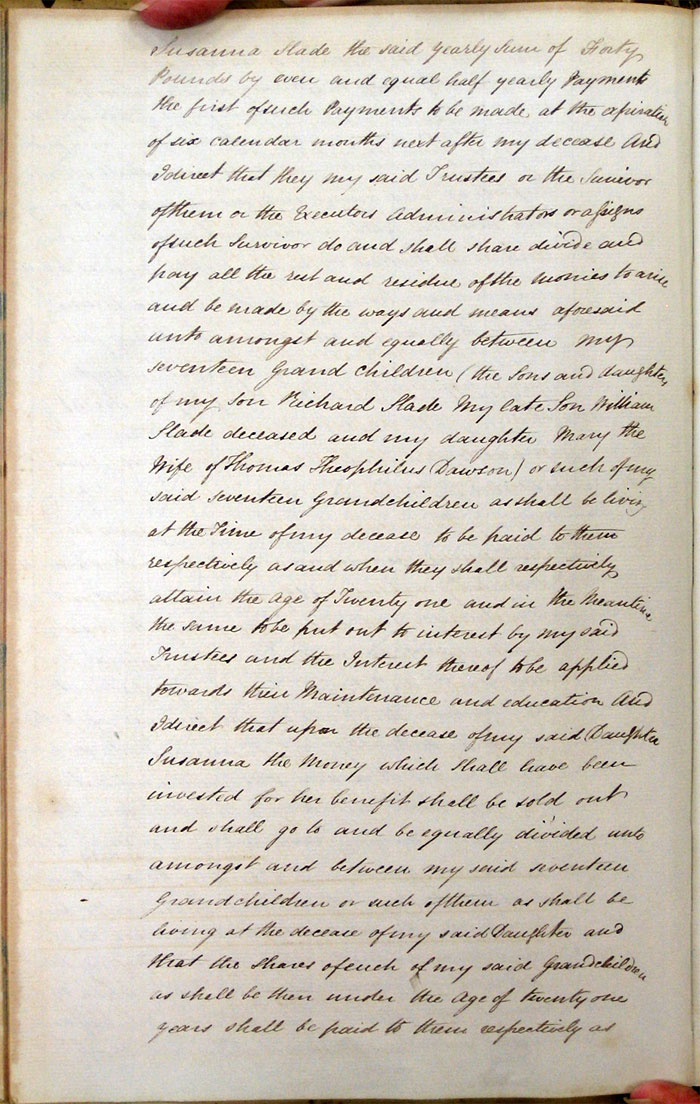 Susanna Slade the said yearly Sum of Forty
Pounds by even and equal half yearly Payments
the first of such Payments to be made at the expiration
of six calendar months next after my decease And
I direct that they my said Trustees or the Survivor
of them or the Executors Administrators or assigns
of such Survivor do and shall share divide and
pay all the rest and residue of the monies to arise
and be made by the ways and means aforesaid
unto amongst and equally between my
seventeen Grand children (the Sons and daughters
of my Son Richard Slade My late Son William
Slade deceased and my daughter Mary the
Wife of Thomas Theophilus Dawson) or such of my
said seventeen Grandchildren as shall be living
at the Time of my decease to be paid to them
respectively as and when they shall respectively
attain the age of Twenty one and in the Meantime
the same to be put out to interest by my said
Trustees and the Interest thereof to be applied
towards their Maintenance and education And
I direct that upon the decease of my said Daughter
Susanna the Money which shall have been
invested for her benefit shall be sold out
and shall go to and be equally divided unto
amongst and between my said seventeen
Grandchildren or such of them as shall be
living at the decease of my said Daughter and
that the shares of such of my said Grandchildren
as shall be then under the Age of twenty one
years shall be paid to them respectively as